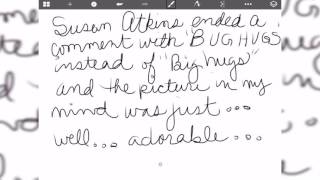 Susan Atkins ended a
comment with "BUGHUGS
instead of "Big hugs"
and the picture in my
mind was just...
well... adorable...